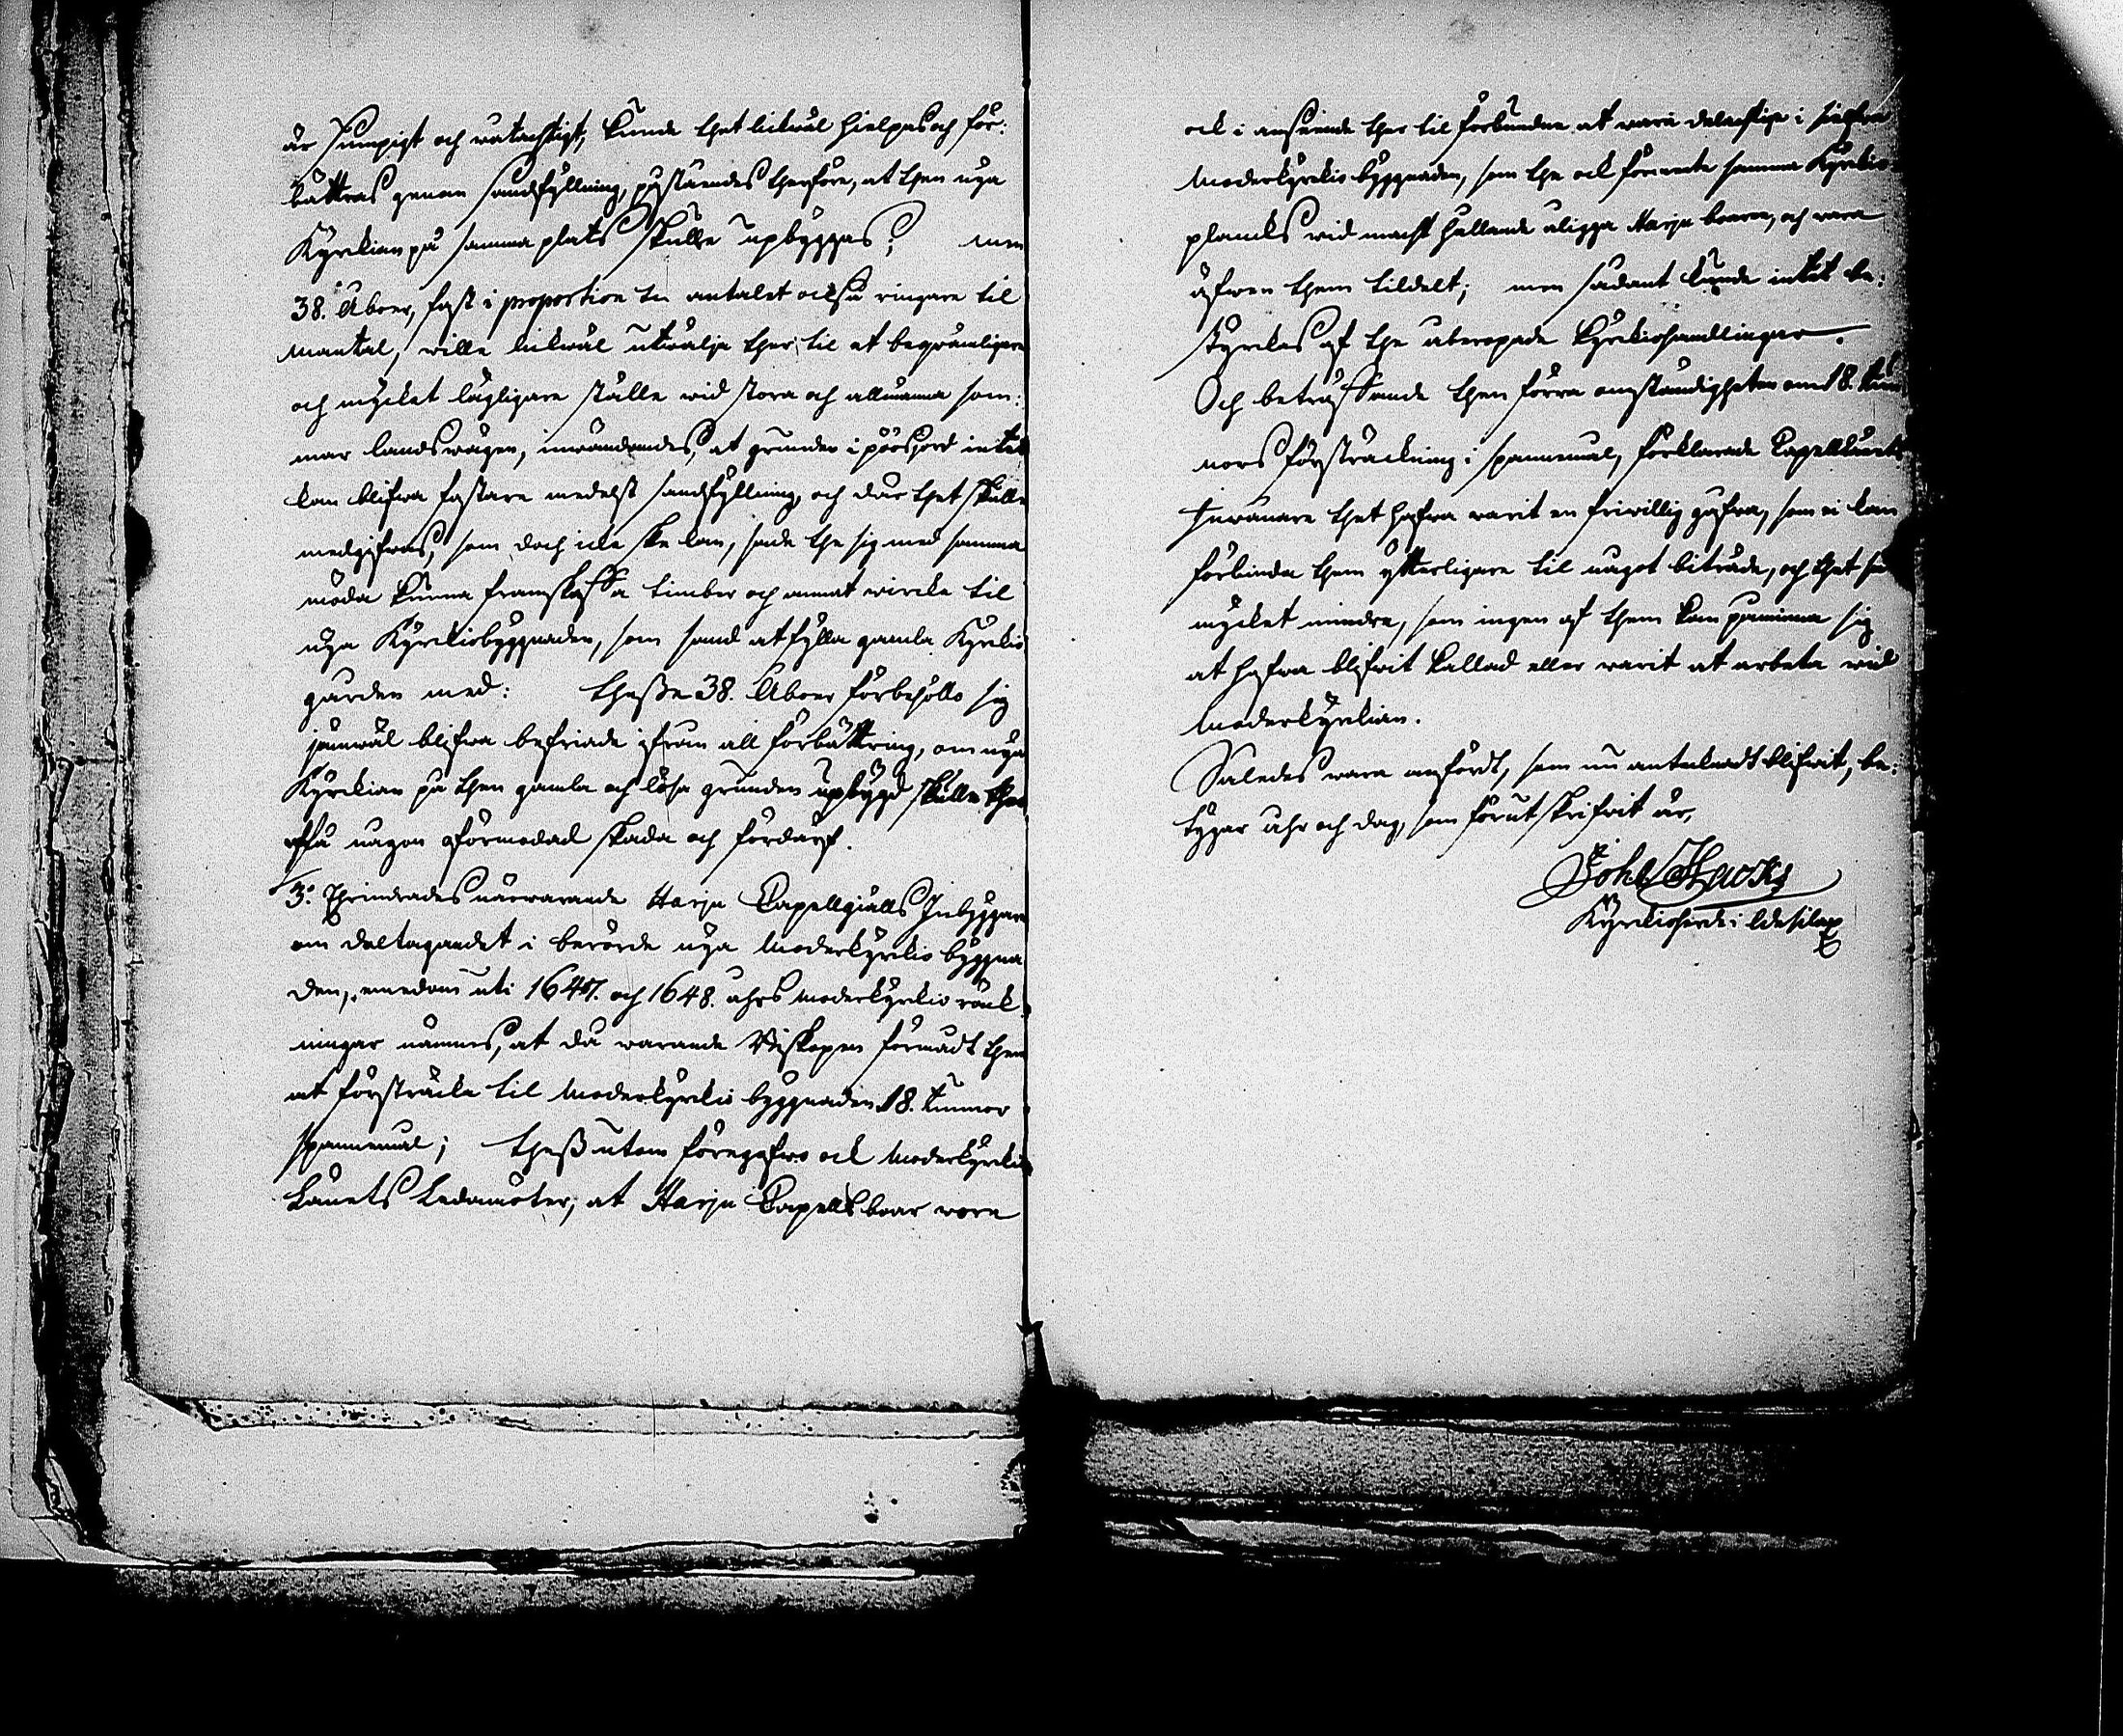 är sumpigt och watachtigt, kunde thet likwäl hielpas och för-
bättras genom sandfyllning, påståendes therföre, at then nya
Kyrckian på samma plats skulle upbyggas; men
38. Åboer, fast i proportion til antalet ock så ringare til
Mantal, wille likwäl utwälja ther til et beqwämligare
och mycket lägligare ställe wid stora och allmänna som-
mar landswägen, inwändandes, at grunden i pörsjord intet
kan blifwa fastare medelst sandfyllning, och där thet skulle
medgifwas, som doch icke ske kan, sade the sig med samma
möda kunna framskaffa timber och annat wircke til
nya Kyrckiobyggnaden, som sand at fylla gamla Kyrckio
gården med: theße 38. Åboer förbehöllo sig
jämwäl blifwa befriade ifrån all förbättring, om nya
Kyrckian på then gamla och lösa grunden upbygd skulle ther
af få någon oförmodad skada och fördärf.
3:o Ehrindrades närwarande Harju Capellgiälls Inbyggare
om deltagandet i berörde nya Moderkyrckio byggna
den, emedan uti 1647. och 1648. åhrs Moderkyrckio räck-
ningar nämnes, at då warande Biskopen förmådt them
at försträcka til Moderkyrckio byggnaden 18. tunnor
spannemål; theßutom föregofwo ock Moderkyrckio
Länets Ledamöter, at Harju Capellsboar woro
ock i anseende ther til förbundne at wara delachtige i sielfwa
Moderkyrckio byggnaden, som the ock förmente samma Kyrckio-
plancks wid macht hållande åligga Harju boarne, och wara
äfwen them tildelt; men sådant kunde intet be-
styrckas af the åberopade Kyrckiohandlingar.
Och beträffande then förra omständigheten om 18. tun-
nors försträckning i spannemål, förklarade Capellländets
Inwånare thet hafwa warit en friwillig gåfwa, som ei kan
förbinda them ytterligare til något biträde, och thet så
mycket mindre, som ingen af them kan påminna sig
at hafwa blifwit kallad eller warit at arbeta wid
Moderkyrckian.
Således wara anfördt, som nu antecknadt blifwit, be-
tygar åhr och dag, som förut skrifwit är,
Joh.
Kyrckioherde i Idesilax